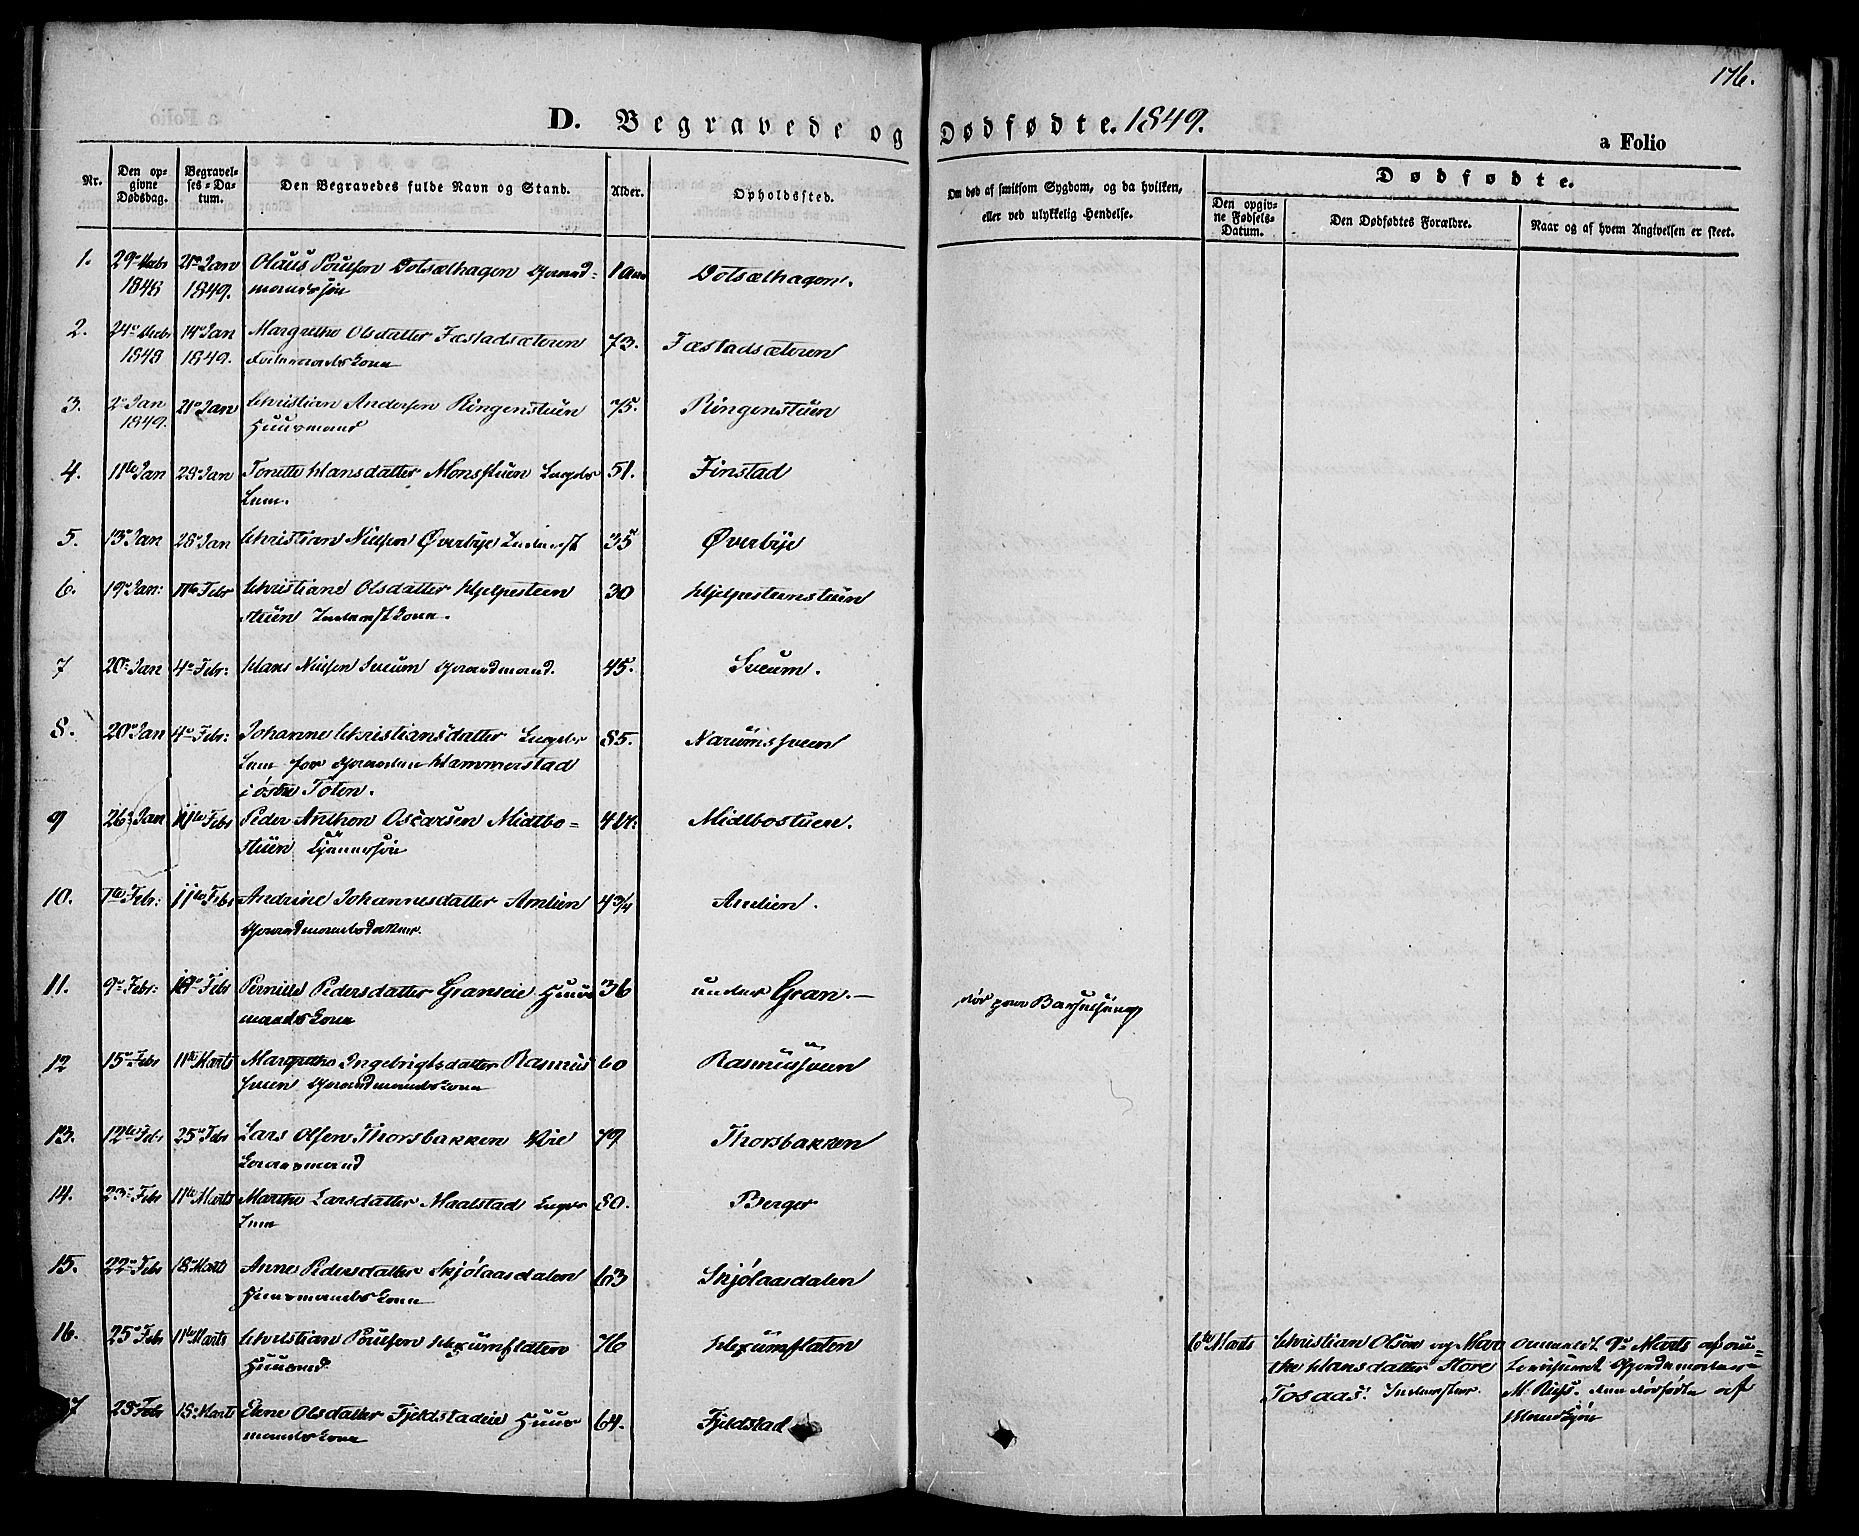 176.
D. Begravede og Dødfødte. 1849.
a Folio
Nr.
Den opgivne Dødsdag.
Begravelses-Datum.
Den Begravedes fulde Navn og Stand.
Alder.
Opholdssted.
Om død af smitsom Sygdom, og da hvilken,
eller ved ulykkelig Hendelse.
Dødfødte.
Den opgivne Fødsels-Datum.
Den Dødfødtes Forældre.
Naar og af hvem Angivelsen er skeet.
1. 29 1848 21 Jan 1849. Olaus Poulsen Dotsælhagen Gaardmandssøn 1 Aar Dotsælhagen.
2. 24 1848 14 Jan 1849. Margrethe Olsdatter Fæstadsæteren 73. Fæstadsæteren
3. 2 Jan 1849. 21 Jan Christian Andersen Ringenstuen Huusmand 75. Ringenstuen
4. 11te Jan 28 Jan Tonette Hansdatter Monsstuen Lægds Lem. 51. Finstad
5. 13 Jan 28 Jan Christian Nielsen Øverbye Inderst 35 Øverbye
6. 19 Jan: 11te Febr Christiane Olsdatter Hjelpesteen
stuen Inderstkone. 30 Hjelpesteenstuen
7 20 Jan 4 Febr: Hans Nielsen Sveum Gaardmand. 45. Sveum.
8. 20 Jan 4 Febr: Johanne Christiansdatter Lægds
Lem for Gaarden Hammerstad
i østre Toten. 85. Narumsveen
9 26 Jan 11te Febr Peder Anthon Oscarsen Midtbo-
stuen 4 Midtbostuen.
10. 7te Febr: 11te Febr Andrine Johannesdatter Amlien
Gaardmandsdatter 4 3/4 Amlien.
11. 9 Febr: Febr Pernille Pedersdatter Graneie Huus
mandskone 36 under Gran.— Barselseng
12 15 Febr 11te Marts Margrethe Ingebrigtsdatter Rasmus
sveen Gaardmandskone 60 Rasmussveen
13. 12te Febr 25 Febr Lars Olsen Thorsbakken
mand 79 Thorsbakken
14. 23 Febr 11te Marts Marthe Larsdatter Maalstad Lægds
Lem 80. Berger
15. 22 Febr 18 Marts Anne Pedersdatter Skjølaasdalen
Huusmandskone 63 Skjølaasdalen
16. 25 Febr 11te Marts Christian Poulsen Hexumflaten
Huusmd 76 Hexumflaten
6te Marts Christian Olsen og Mar
the Hansdatter Store
Tosaas. Inderster.
Anmeldt 9 Marts af
M. Riis. den dødfødte af
Mandkjøn
17 28 Febr 18 Marts Elene Olsdatter Fjeldstadeie Huus
mandskone 64. Fjeldstad